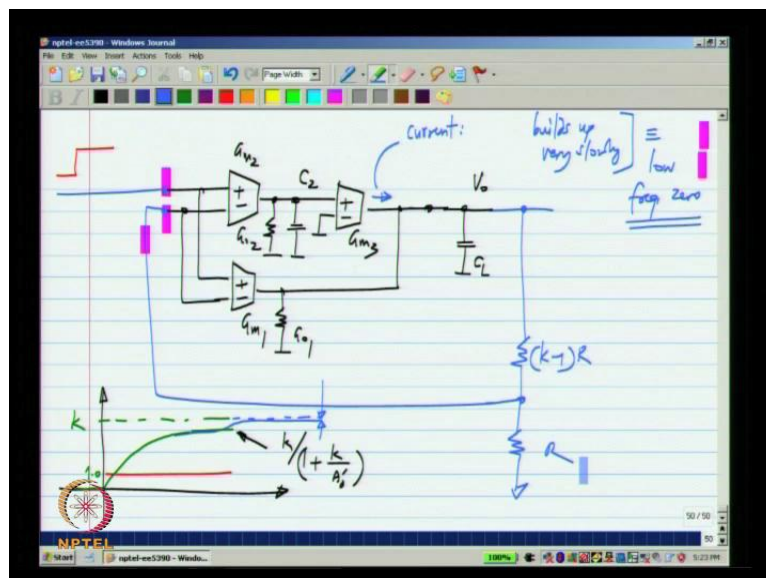 nptel-ee5390 - Windows Journal
File Edit View Insert Actions Tools Help
Page Width
current:
builds up
very slowly
≡
low
freq zero
Gm2
C2
Vo
Go2
Gm3
CL
Gm1
Go1
(k-1)R
k
k/(1 + k/A0')
R
1.0
50 / 50
50
NPTEL
start
nptel-ee5390 - Windo...
100%
5:23 PM